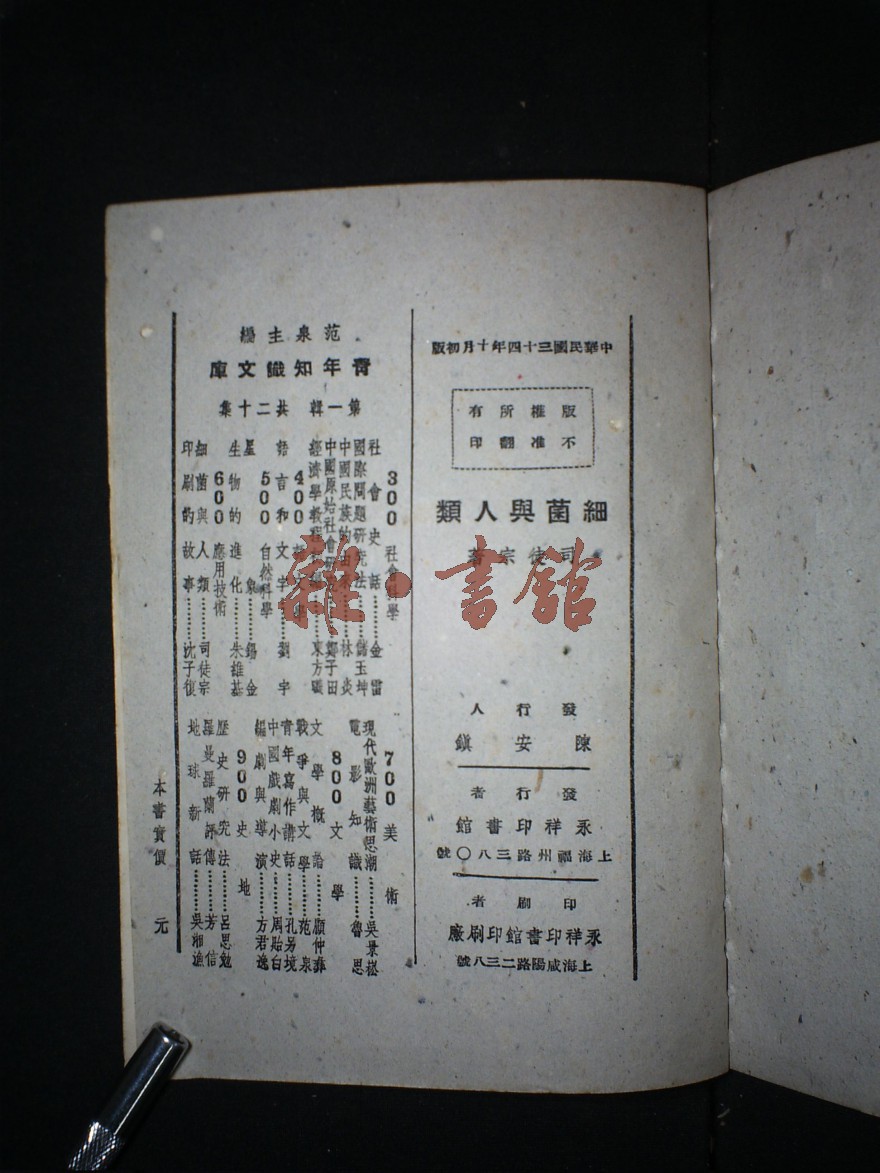 中華民國三十四年十月初版
版權所有
不准翻印
細菌與人類
司徒宗著
發行人
陳安鎮
發行者
永祥印書館
上海福州路三八〇號
印刷者
永祥印書館印刷廠
上海咸陽路二三八號
范泉主編
青年知識文庫
第一輯 共二十集
300 社會科學
社會史話………金雷
國際問題研究法……儲玉坤
中國民族的由來……林炎
中國原始社會研究……鄭子田
經濟學教程……東方曦
400
語言和文字……劉宇
500 自然科學
星象……錫金
生物的進化……朱維基
600 應用技術
細菌與人類……司徒宗
印刷的故事……沈子復
700 美術
現代歐洲藝術思潮……吳景崧
電影知識……魯思
800 文學
文學概論……顧仲彝
戰爭與文學……范泉
青年寫作講話……孔另境
中國戲劇小史……周貽白
編劇與導演……方君逸
900 史地
歷史研究法……呂思勉
羅曼羅蘭評傳……芳信
地球新話……吳湘漁
本書實價 元
雜·書館